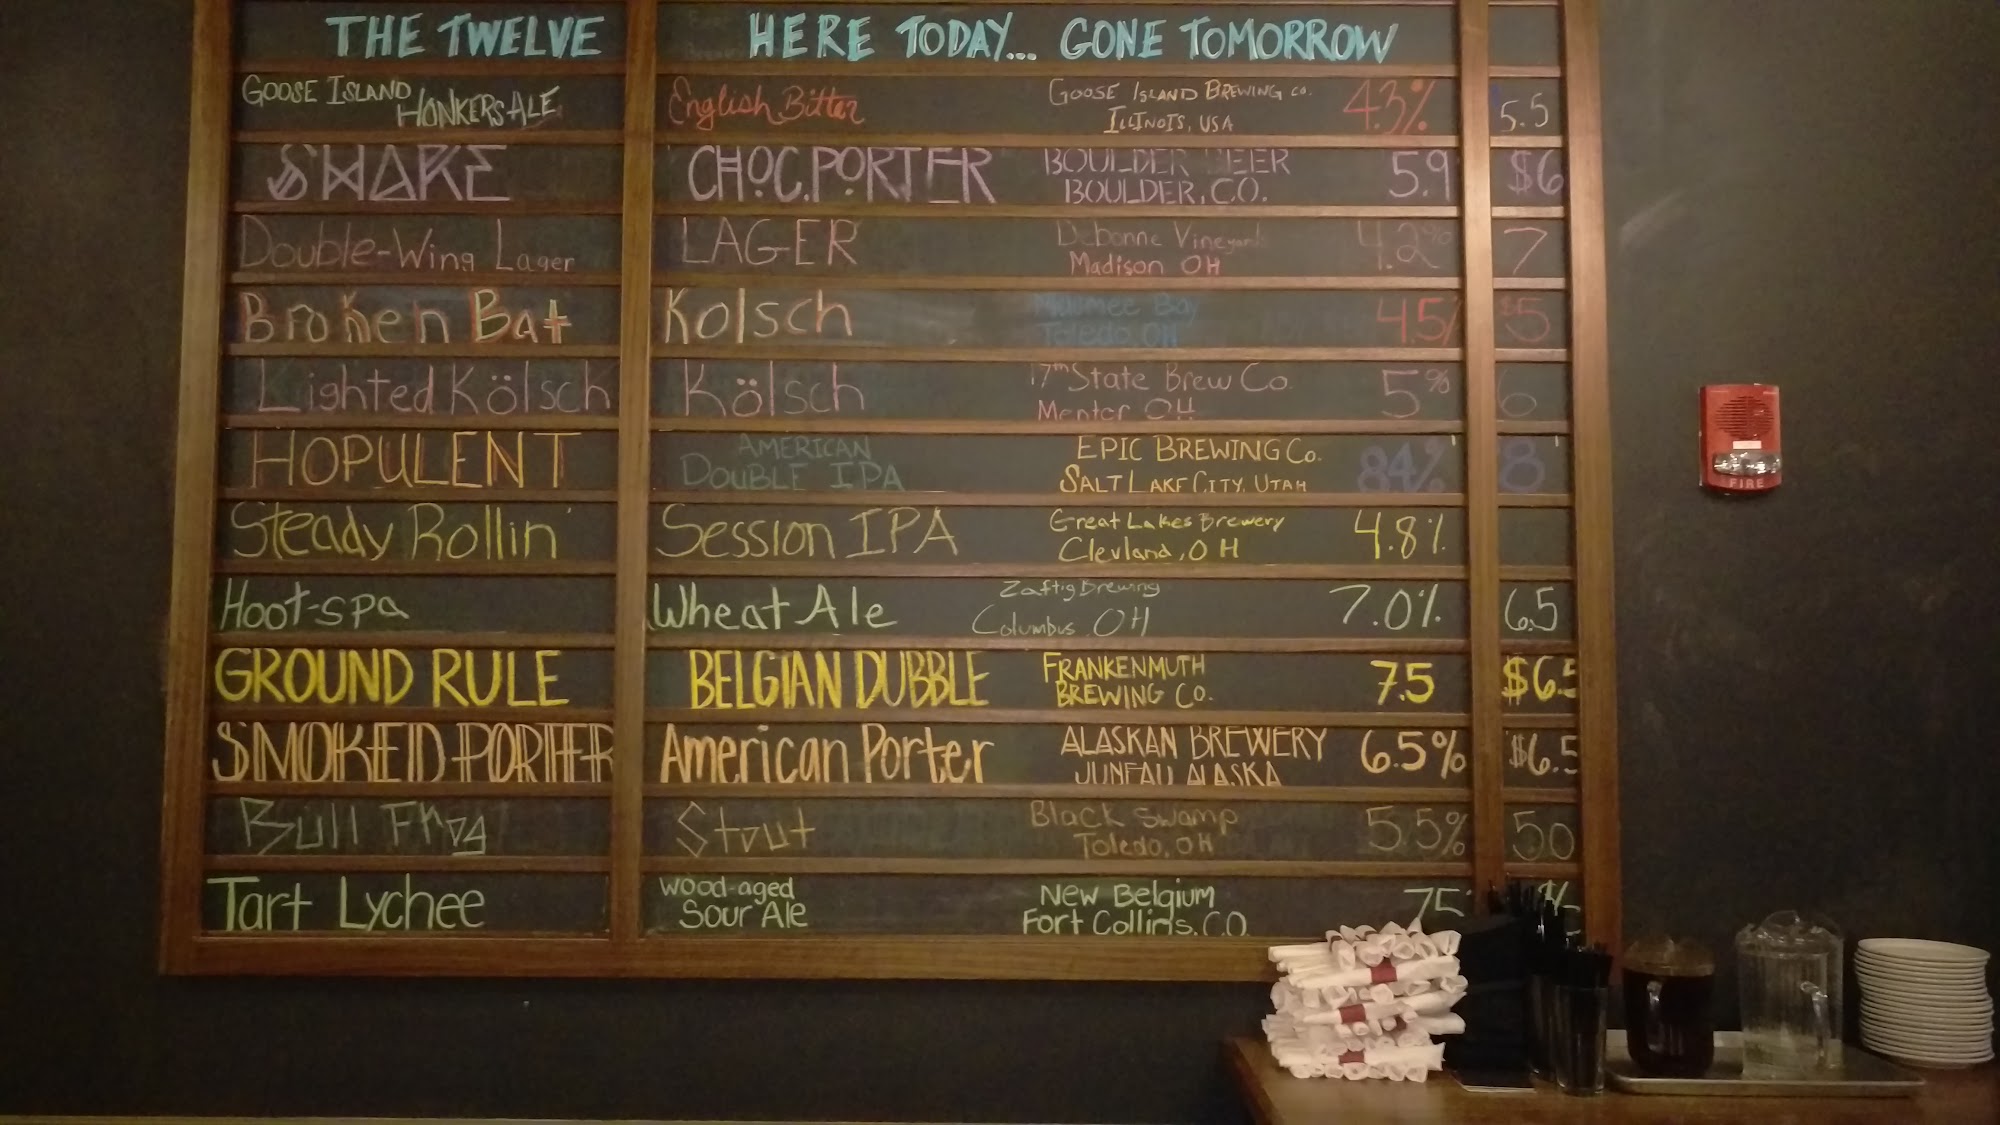 THE TWELVE HERE TODAY... GONE TOMORROW
GOOSE ISLAND HONKERS ALE English Bitter GOOSE ISLAND BREWING CO. ILLINOIS, USA 4.3% 5.5
SHAKE CHOC. PORTER BOULDER BEER BOULDER, CO. 5.9 $6
Double-Wing Lager LAGER Debonne Vineyard Madison OH 4.2% 7
Broken Bat Kolsch Maumee Bay Toledo, OH 4.5% $5
Lighted Kölsch Kölsch 17th State Brew Co. Mentor OH 5% 6
HOPULENT AMERICAN DOUBLE IPA EPIC BREWING Co. SALT LAKE CITY, UTAH 8.4% 8
Steady Rollin' Session IPA Great Lakes Brewery Clevland, OH 4.8%
Hoot-spa Wheat Ale Zaftig Brewing Columbus, OH 7.0% 6.5
GROUND RULE BELGIAN DUBBLE FRANKENMUTH BREWING CO. 7.5 $6.5
SMOKED PORTER American Porter ALASKAN BREWERY JUNEAU ALASKA 6.5% $6.5
Bull Frog Stout Black Swamp Toledo, OH 5.5% 5.0
Tart Lychee Wood-aged Sour Ale New Belgium Fort Collins, CO. 75
FIRE